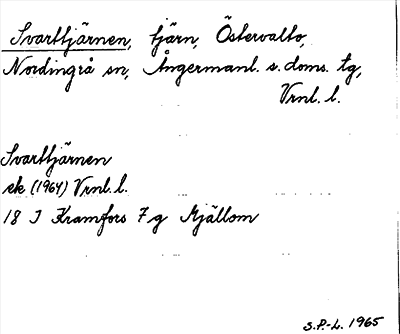 Svarttjärnen, tjärn, Östervalto,
Nordingrå sn, Ångermanl. s. doms. tg,
Vrnl. l.
Svarttjärnen
ek (1964) Vrnl. l.
18 J Kramfors 7 g Mjällom
S.P.-L. 1965